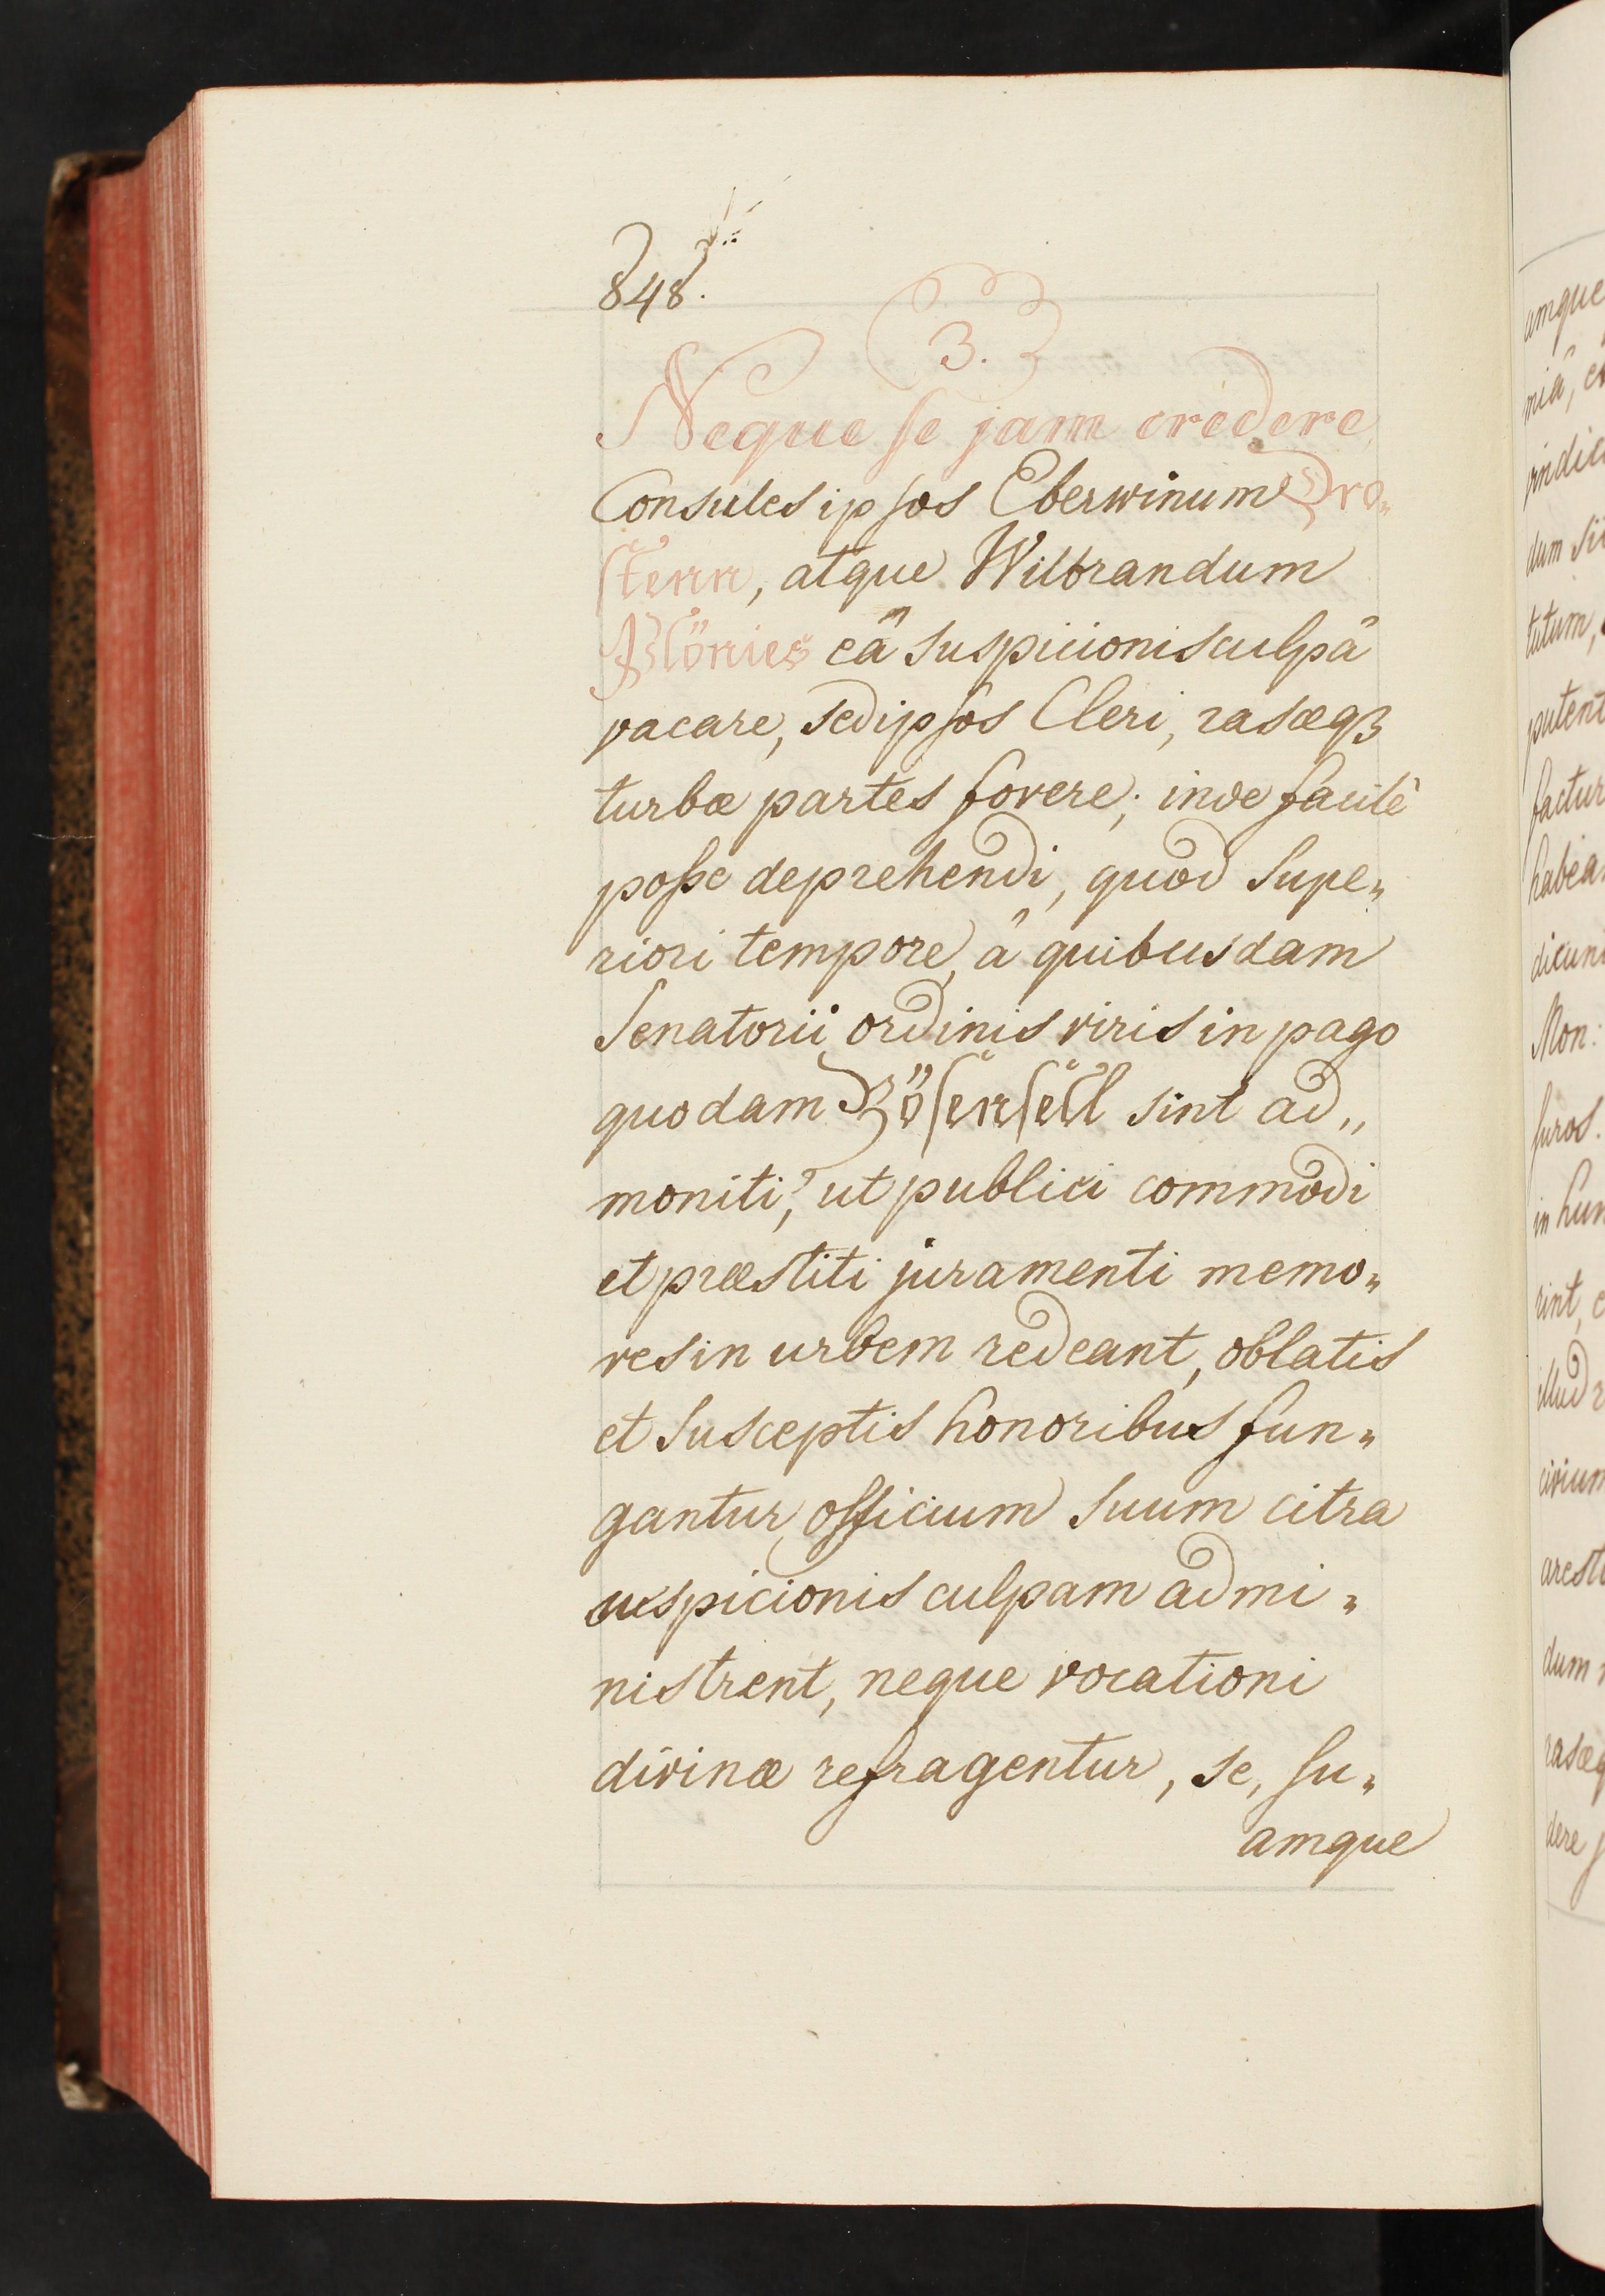 848.
3.
Neque se jam credere
Consules ipsos Eberwinum Dro„
sten, atque Wilbrandum
Plönies eâ suspicionis culpâ
vacare, sed ipsos Cleri, rasæqꝫ
turbæ partes fovere; inde facilè
poße deprehendi, quod supe„
riori tempore, â quibusdam
Senatorii ordinis viris in pago
quodam Bösensell sint ad„
moniti, ut publici commodi
et præstiti juramenti memo„
res in urbem redeant, oblatis
et susceptis honoribus fun„
gantur, officium suum citra
uspicionis culpam admi„
nistrent, neque vocationi
divinæ refragentur, se, su„
amque